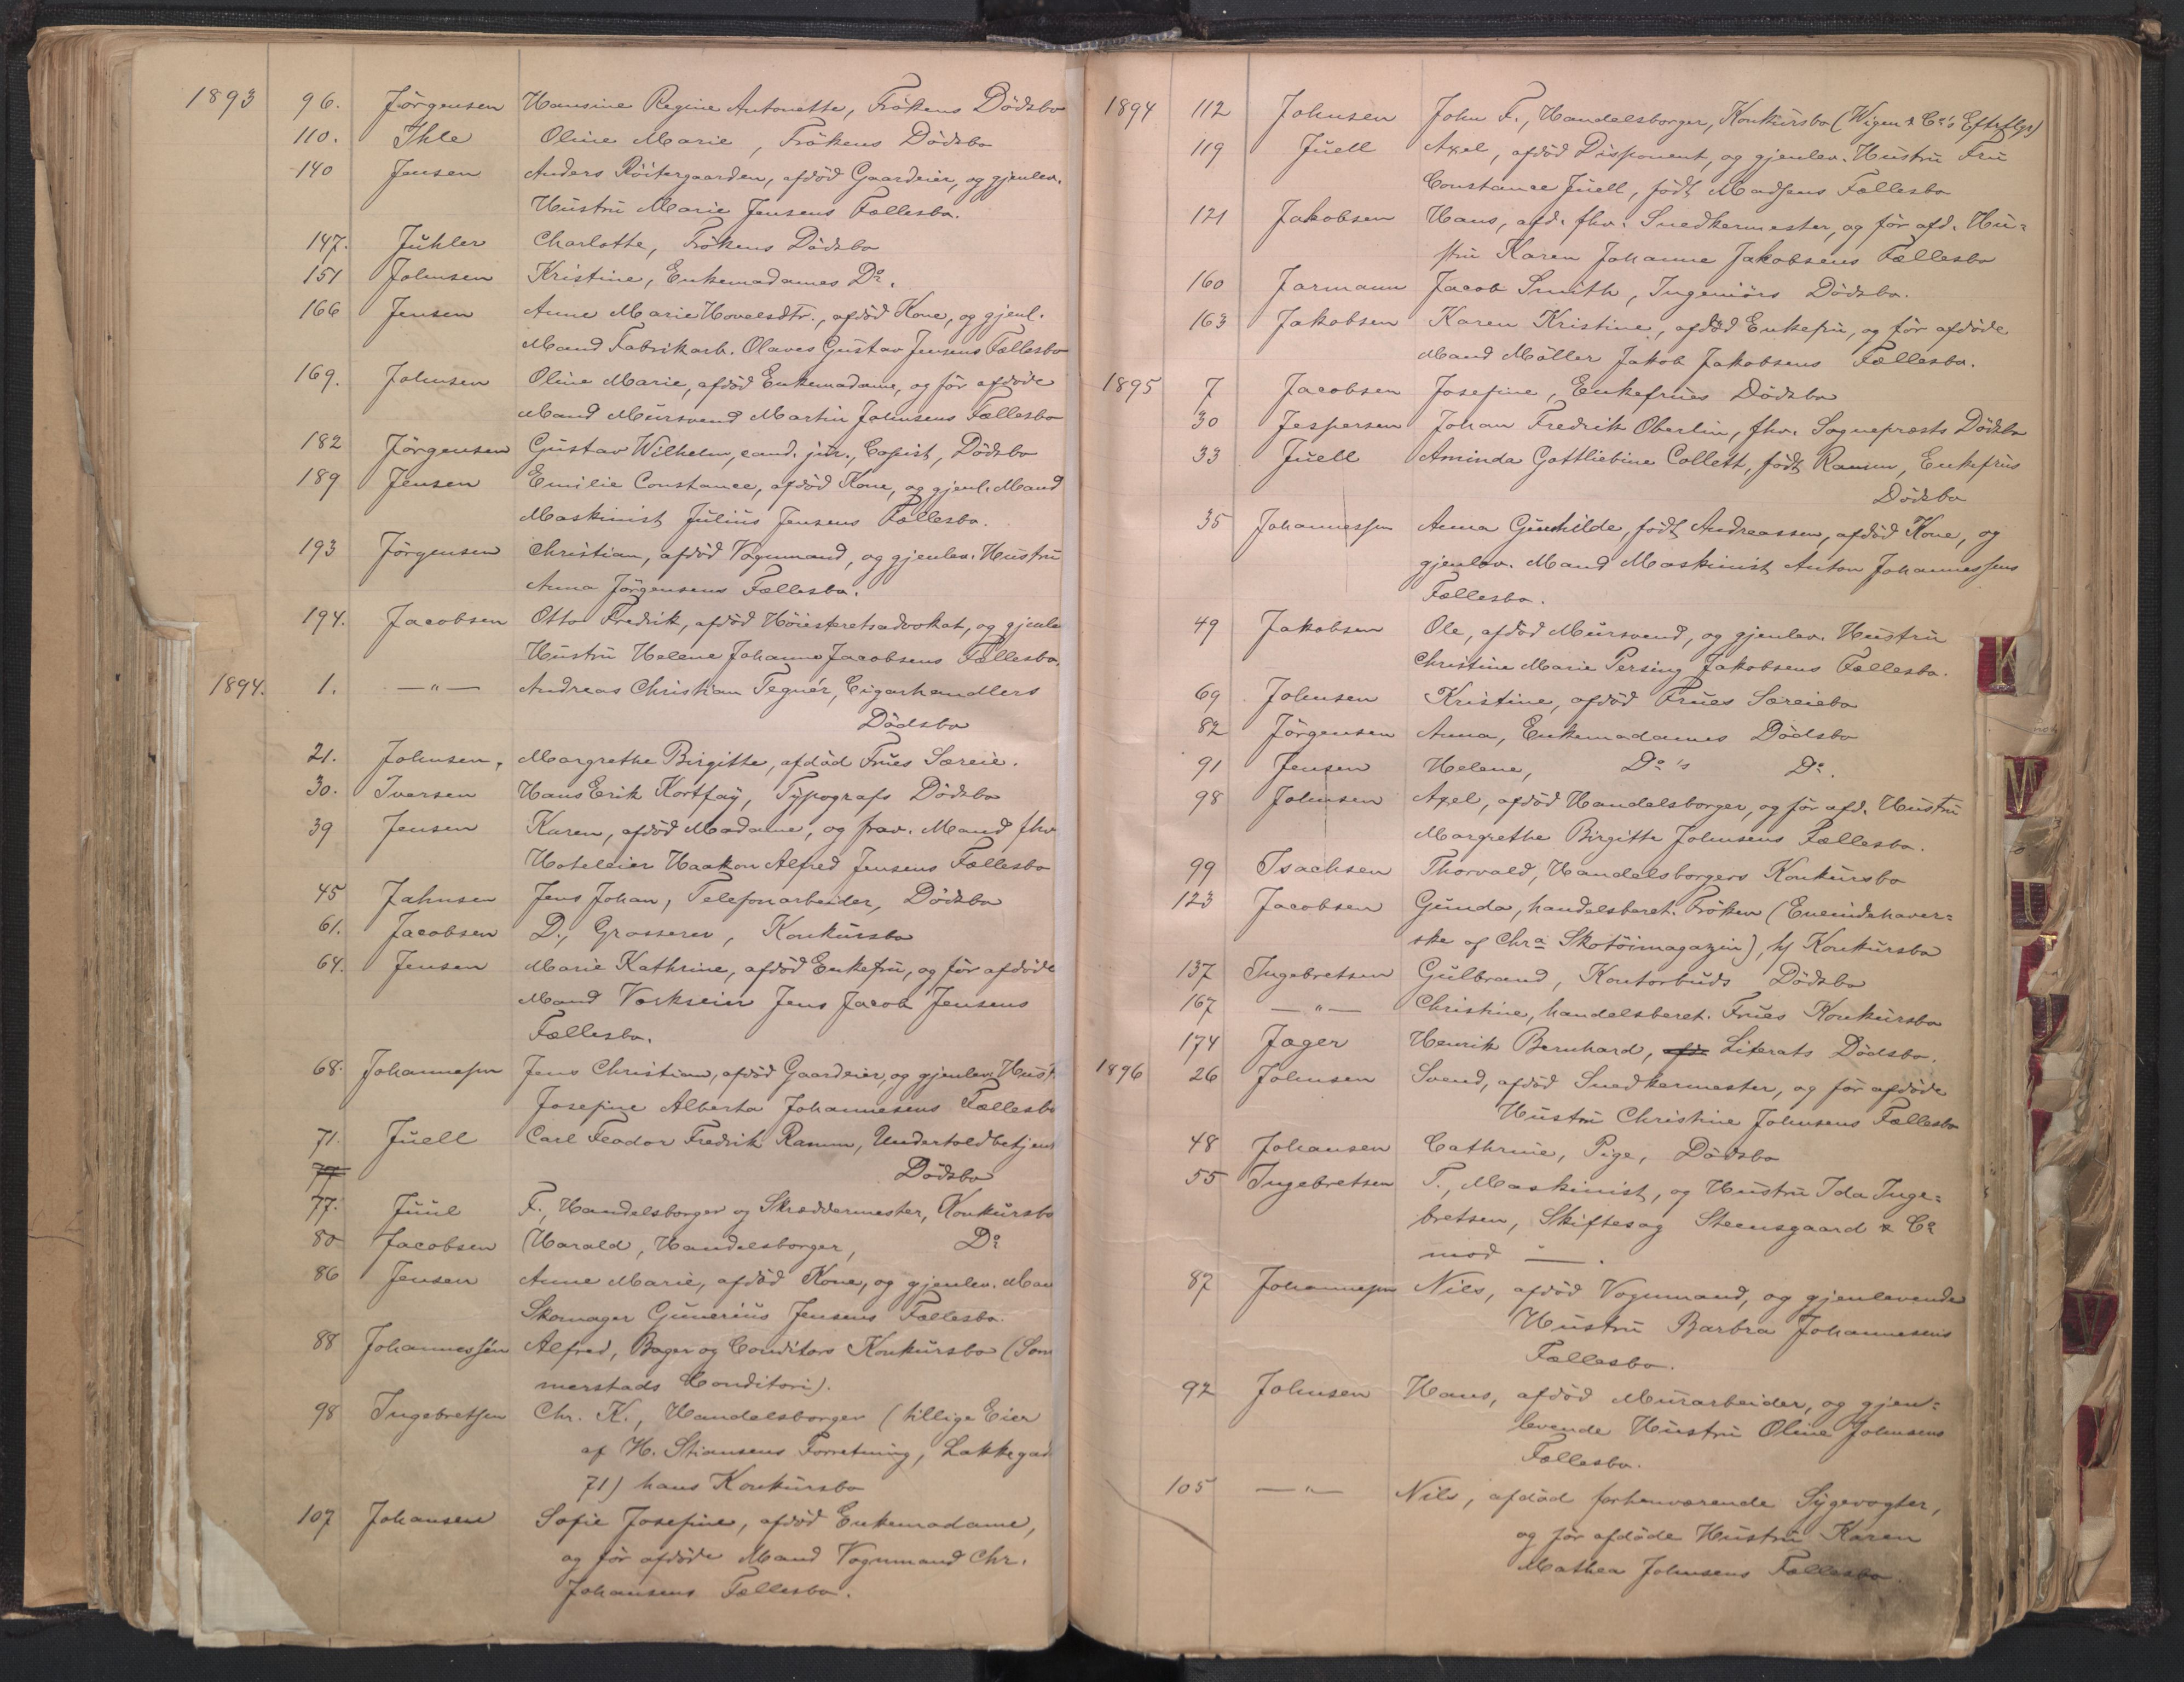 1893 96. Jörgensen Hansine Regine Antonette, Frökens Dödsbo
110. Ihle Oline Marie, Frökens Dödsbo
140 Jensen Anders Röitergaarden, afdöd Gaardeier, og gjenlev.
Hustru Marie Jensens Fællesbo.
147. Juhler Charlotte, Frökens Dödsbo
151 Johnsen Kristine, Enkemadames Do.
166 Jensen Anne Marie Hovelsdtr., afdöd Kone, og gjenl.
Mand Fabrikarb. Olaves Gustav Jensens Fællesbo
169. Johnsen Oline Marie, afdöd Enkemadame, og för afdöde
Mand Mursvend Martin Johnsens Fællesbo
182 Jörgensen Gustav Wilhelm, cand. jur., Copist, Dödsbo
189 Jensen Emilie Constance, afdöd Kone, og gjenl. Mand
Maskinist Julius Jensens Fællesbo.
193 Jörgensen Christian, afdöd Vognmand, og gjenlev. Hustru
Anna Jörgensens Fællesbo.
194. Jacobsen Otto Fredrik, afdöd Höiesteretsadvokat, og gjenle
Hustru Helene Johanne Jacobsens Fællesbo.
1894. 1. —"— Andreas Christian Tegnér, Cigarhandlers
Dödsbo
21. Johnsen, Margrethe Birgitte, afdöd Frues Særeie.
30. Iversen Hans Erik Kortfay, Typografs Dödsbo
39 Jensen Karen, afdöd Madame, og frav. Mand fhv
Hoteleier Haakon Alfred Jensens Fællesbo
45 Jahnsen Jens Johan, Telefonarbeider, Dödsbo
61. Jacobsen D., Grosserer, Konkursbo
64. Jensen Marie Kathrine, afdöd Enkefru, og för afdöde
Mand Værkseier Jens Jacob Jensens
Fællesbo.
68. Johannessen Jens Christian, afdöd Gaardeier, og gjenlev. Hust.
Josefine Alberta Johannesens Fællesbo
71. Juell Carl Feodor Fredrik Ramm, Undertoldbetjent
77 Dödsbo
77. Juul F., Handelsborger og Skræddermester, Konkursbo
80 Jacobsen Harald, Handelsborger, Do
86 Jensen Anne Marie, afdöd Kone, og gjenlev. Man
Skomager Gunerius Jensens Fællesbo.
88 Johannessen Alfred, Bager og Conditors Konkursbo (Som
merstads Conditori).
98 Ingebretsen Chr. K., Handelsborger (tillige Eier
af H. Stiansens Forretning, Lakkegad
71) hans Konkursbo
107 Johansen Sofie Josefine, afdöd Enkemadame,
og för afdöde Mand Vognmand Chr.
Johansens Fællesbo.
1894 112 Johnsen John F., Handelsborger, Konkursbo (Wigen & Co's Efterflgr)
119 Juell Axel, afdöd Disponent, og gjenlev. Hustru Fru
Constance Juell, födt Madsens Fællesbo
121 Jakobsen Hans, afd. fhv. Snedkermester, og för afd. Hu-
stru Karen Johanne Jakobsens Fællesbo
160 Jarmann Jacob Smith, Ingeniörs Dödsbo.
163 Jakobsen Karen Kristine, afdöd Enkefru, og för afdöde
Mand Möller Jakob Jakobsens Fællesbo.
1895 7 Jacobsen Josefine, Enkefrues Dödsbo
30 Jespersen Johan Fredrik Oberlin, fhv. Sognepræsts Dödsbo
33 Juell Aminda Gottliebine Collett, födt Ramm, Enkefrus
Dödsbo
35 Johannessen Anna Gunhilde, födt Andreassen, afdöd Kone, og
gjenlev. Mand Maskinist Anton Johannessens
Fællesbo.
49 Jakobsen Ole, afdöd Mursvend, og gjenlev. Hustru
Christine Marie Persing Jakobsens Fællesbo.
69 Johnsen Kristine, afdöd Frues Særeiebo
82 Jörgensen Anna, Enkemadames Dödsbo
91 Jensen Helene, Do's Do.
98 Johnsen Axel, afdöd Handelsborger, og för afd. Hustru
Margrethe Birgitte Johnsens Fællesbo.
99 Isachsen Thorvald, Handelsborgers Konkursbo
123 Jacobsen Gunda, handelsberet. Fröken (Eneindehaver-
ske af Chra Skotöimagazin), hs Konkursbo
137 Ingebretsen Gulbrand, Kontorbuds Dödsbo
167 —"— Christine, handelsberet. Frues Konkursbo
174 Jæger Henrik Bernhard, afd. Literats Dödsbo.
1896 26 Johnsen Svend, afdöd Snedkermester, og för afdöde
Hustru Christine Johnsens Fællesbo
48 Johansen Cathrine, Pige, Dödsbo
55 Ingebretsen T., Maskinist, og Hustru Ida Inge-
bretsen, Skiftesag Steensgaard & Co
mod —"—.
87 Johannessen Nils, afdöd Vognmand, og gjenlevende
Hustru Barbra Johannesens
Fællesbo.
92 Johnsen Hans, afdöd Murarbeider, og gjen-
levende Hustru Oline Johnsens
Fællesbo.
105 —"— Nils, afdöd forhenværende Sygevogter,
og för afdöde Hustru Karen
Mathea Johnsens Fællesbo.
K
M
U
V